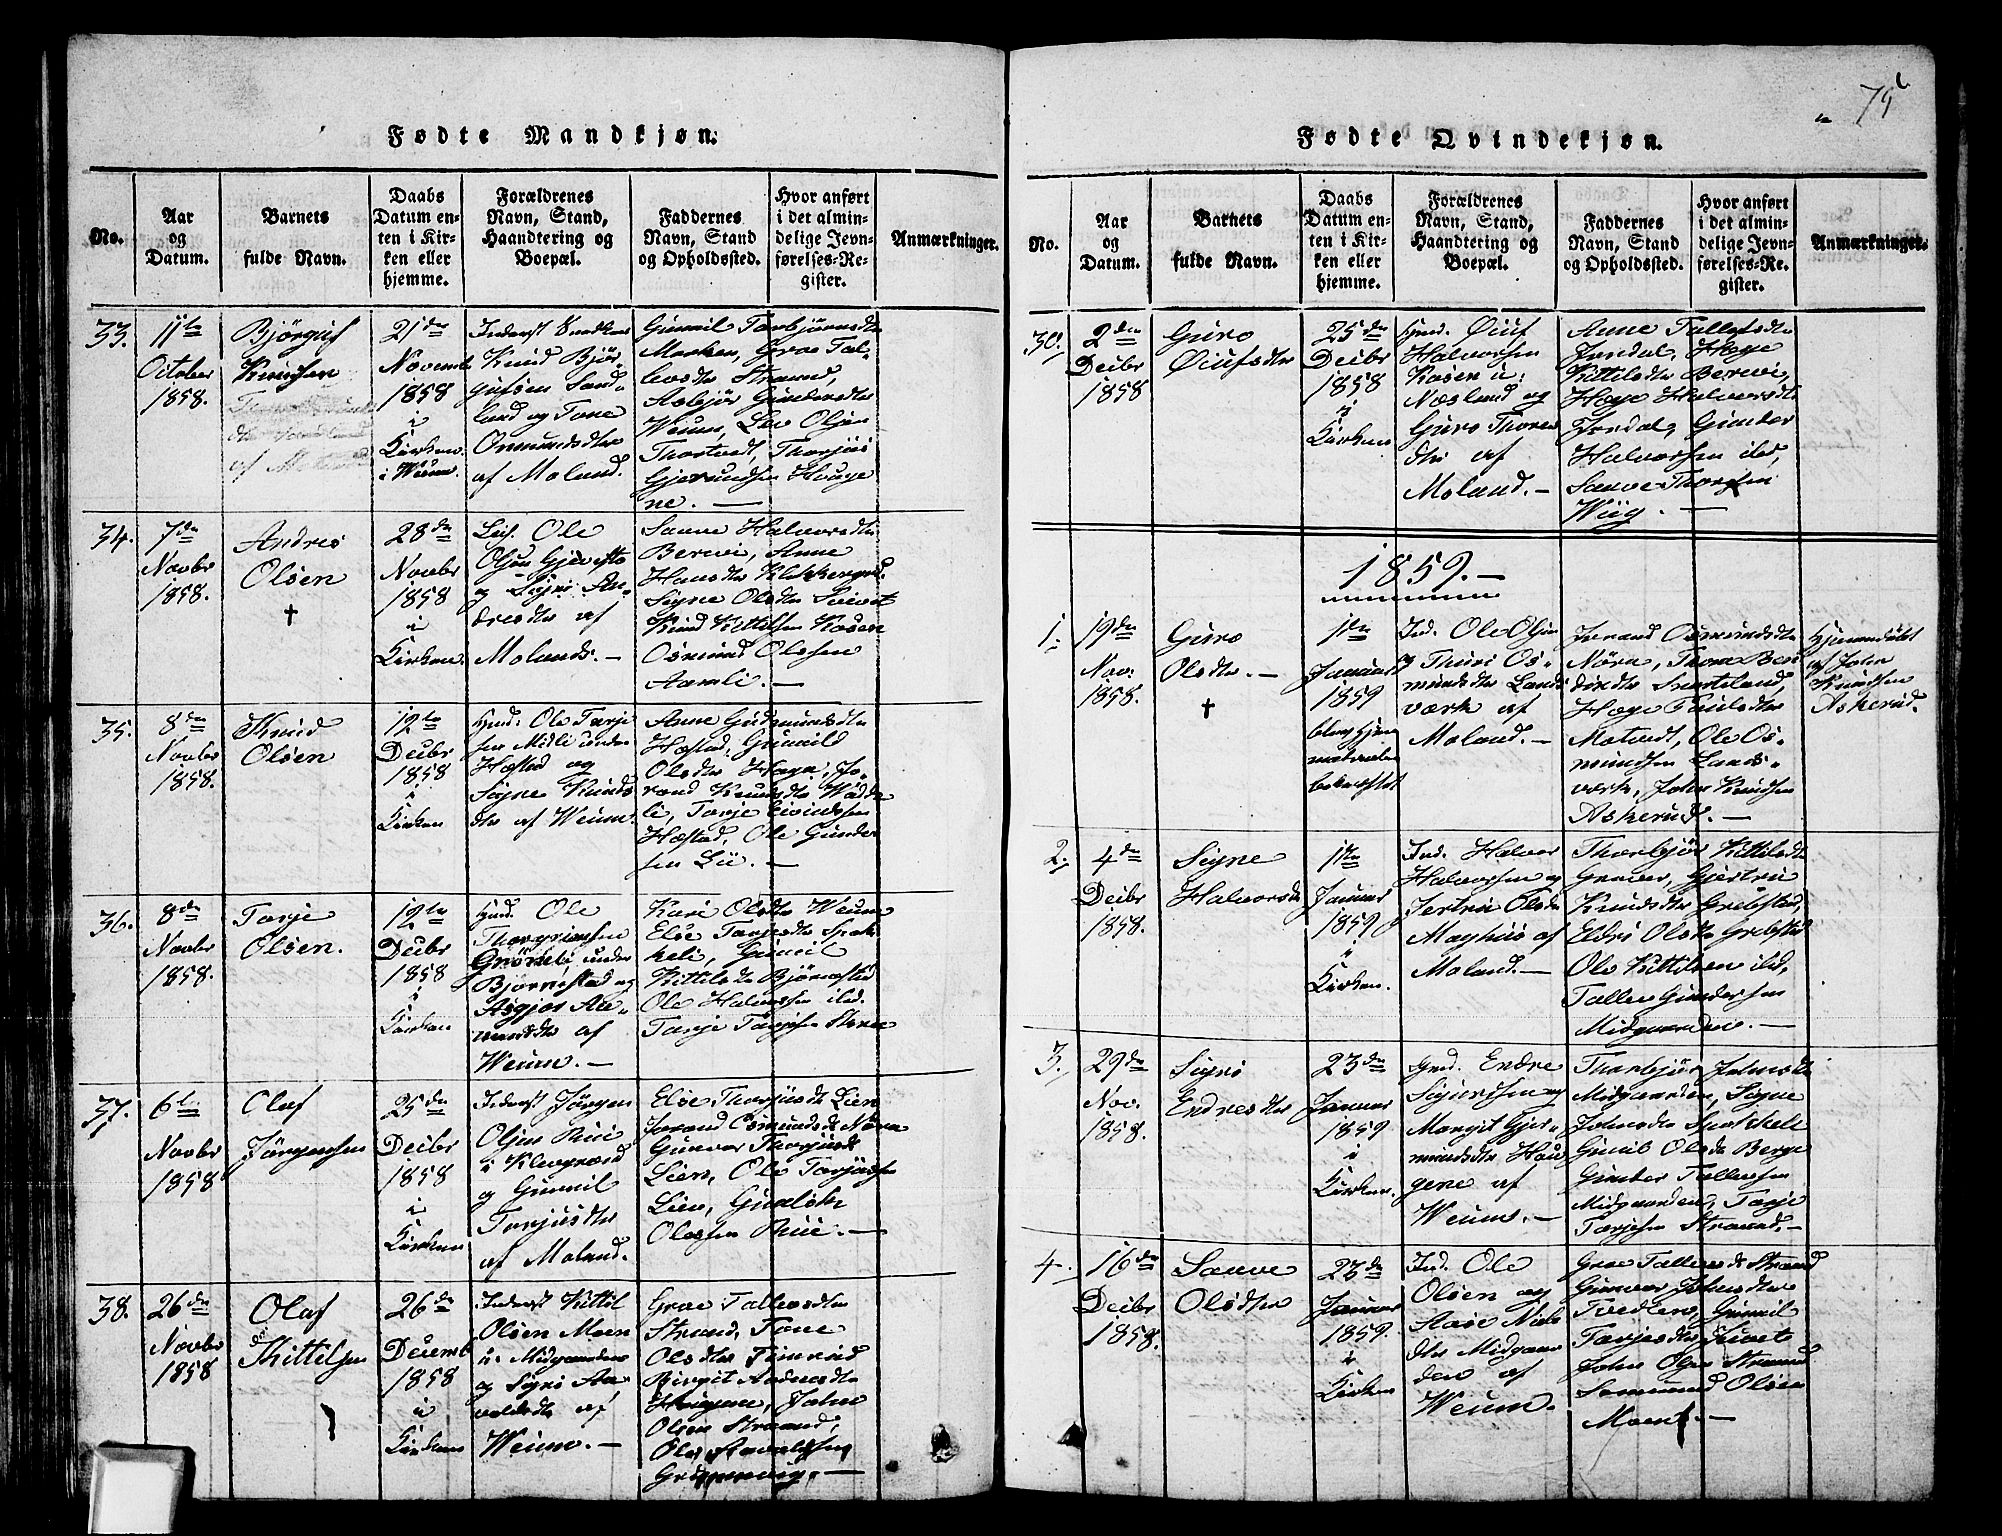 75
Fødte Mandkjøn.
No.
Aar
og
Datum.
Barnets
fulde Navn.
Daabs
Datum en-
ten i Kir-
ken eller
hjemme.
Forældrenes
Navn, Stand,
Haandtering og
Boepæl.
Faddernes
Navn, Stand
og Opholdssted.
Hvor anført
i det almin-
delige Jevn-
førelses-Re-
gister.
Anmærkninger.
33.
11te
October
1858.
Bjørguf
Knudsen
21de
Novemb
1858
i
Kirken
i Weum.
Inderst
Knud Bjør-
gufsen Sand-
land og Tone
Osmundsdtr
af Moland.
Gunnil Torbjørnsdtr
Marken, Groe Tal-
levsdtr Straand,
Asbjør Gundersdtr
Weum, Lev Olsen
Thortvedt, Thorjus
Gjermundsen Houge
ne. —
34.
7de
Novbr
1858.
Andres
Olsen
†
28de
Novbr
1858
i
Kirken.
Ole
Olsen
og Signe An-
dresdtr af
Molands. —
Sauve Halvorsdtr
Berwi, Anne
Hansdtr Klokkergrd.
Signe Olsdtr
Knud Kittilsen Kosen
Osmund Olssen
Aamli. —
35.
8de
Novbr
1858.
Knud
Olsen
12te
Decbr
1858
i
Kirken
Hmd. Ole Tarje
sen Midli under
Hæstad og
Signe Knuds
dtr af Weum.
Anne Gudmundsdtr
Hæstad, Gunnild
Olsdtr Hage, Jo-
rand Knudsdtr
li, Tarje Eivindssen
Hæstad, Ole Gunder
sen Lii. —
36.
8de
Novbr
1858.
Tarje
Olsen.
12te
Decbr
1858
i
Kirken
Hmd. Ole
Thorgriimsen
Grønli, under
Bjørnestad og
Asgjør Aa-
mundsdtr af
Weum. —
Kari Olsdtr Weum
Else Tarjesdtr Spok-
keli, Gunnil
Kittilsdtr Bjørnestad
Ole Halvorssen ibid.
Tarje Tarjesen
37.
6te
Novbr
1858
Olaf
Jørgensen
25de
Decbr
1858
i
Kirken
Inderst Jørgen
Olsen Ruii
i Klevgrend
og Gunnil
Tarjusdtr
af Moland.
Else Thorjusdtr Lien
Jorand Osmundsdtr Nørn
Gunvor Thorjusdtr
Lien, Ole Torjussen
Lien, Gunleik
Olessen Ruii. —
38.
26de
Novbr
1858
Olaf
Kittilsen
26de
Decemb
1858
i
Kirken
Inderst Kittil
Olsen Moen
u. Midgaarden
og Signe Aa-
valdsdtr af
Weum. —
Groe Tallevsdtr
Straand, Tone
Olsdtr
Birgit Andresdtr
Haugene, John
Olsen Straand,
Ole Aavaldssen
Fødte Qvindekjøn.
No.
Aar
og
Datum.
Barnets
fulde Navn.
Daabs
Datum en-
ten i Kir-
ken eller
hjemme.
Forældrenes
Navn, Stand,
Haandtering og
Boepæl.
Faddernes
Navn, Stand
og Opholdssted.
Hvor anført
i det almin-
delige Jevn-
førelses-Re-
gister.
Anmærkninger.
30.
2den
Decbr
1858
Guro
Øiufsdtr
25de
Decbr
1858
i
Kirken
Hmd. Øiuf
Halvorssen
Kosen u.
Næsland og
Guro Thores
dtr af
Moland. —
Anne Tallefsdtr
Jordal, Hæge
Kittilsdtr Berwi,
Hæge Halvorsdtr
Jordal, Gunder
Halvorssen ibid,
Sauve Thorssen
Wiig. —
1859. —
1.
19de
Nov.
1858.
Guro
Olsdtr. —
†
1ste
Januar
1859
Ind. Ole Olsen
og Thuri Os-
mundsdtr Lands
værk af
Moland. —
Jorand Osmundsdtr
Nørn, Thone
dindtr
Hæge Paulsdtr
Motvedt, Ole Os-
mundsen Lands-
værk, John Knudsen
Askerud. —
Hjemmedøbt
af John
Knudsen
Askerud.
2.
4de
Decbr
1858.
Signe
Halvorsdt
1ste
Januar
1859
i
Kirken.
Ind. Halvor
Halvorssen og
Jertru Olsdtr
Moghus af
Moland. —
Thorbjør Kittilsdtr
Graver, Gjertru
Knudsdtr Grebstad,
Eldri Olsdtr Grebstad
Ole Kittilsen ibid,
Tallev Gundersen
Midgaarden. —
3.
29de
Nov.
1858.
Signe
Endresdtr
23de
Januar
1859
i
Kirken.
Gmd. Endre
Sigurdsen og
Margit Gjer-
mundsdtr Hau
gene af
Weum. —
Thorbjør Johnsdtr
Midgaarden, Signe
Johnsdtr Spokkeli
Gunild Olsdtr Berge
Gunder Tallevsen
Midgaarden, Tarje
Tarjesen Straand. —
4.
16de
Decbr
1858.
Sauve
Olsdtr
23de
Januar
1859.
i
Kirken
Ind. Ole
Olsen og
Aase Niels
dtr Midgaar
den af
Weum.
Groe Tallevsdt Straand
Gunvor Johnsdtr
Tvedten, Gunnil
Tarjesdtr
John Olsen Straand
Aamund Olsen
Moen. —